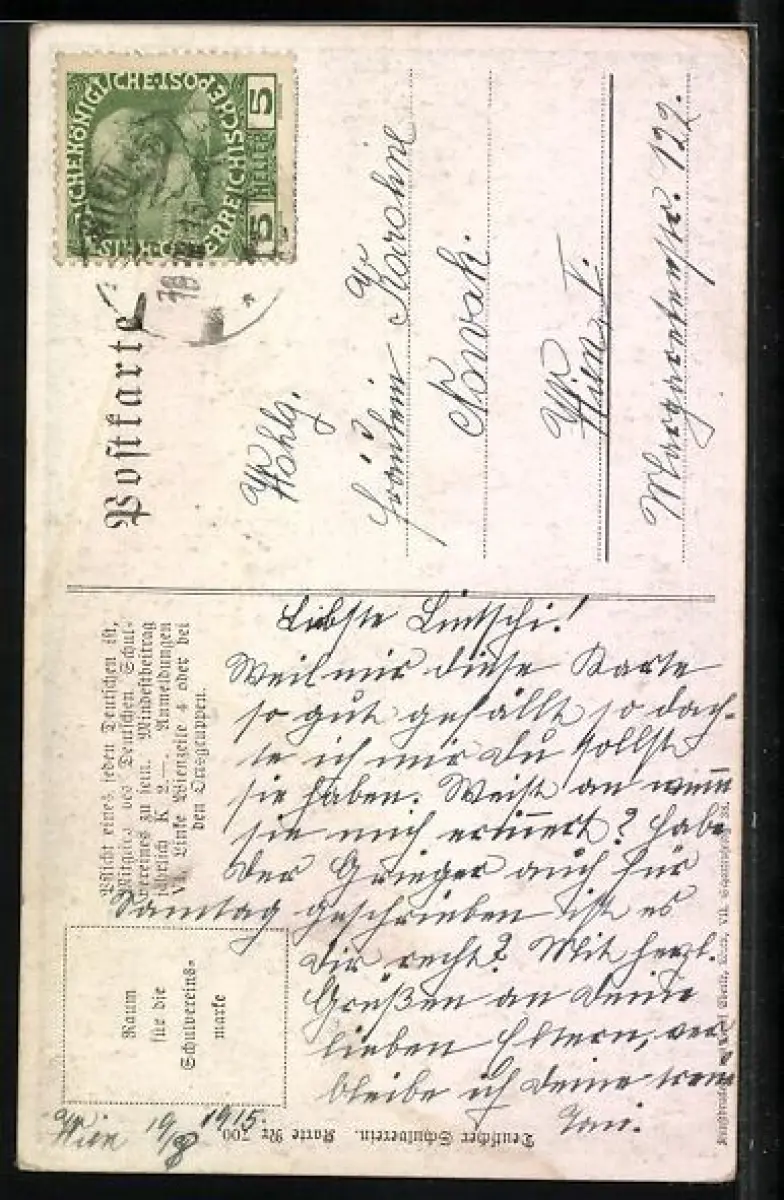 Postkarte
KAISERLICHEKÖNIGLICHE POST
ÖSTERREICHISCHE
5 HELLER 5
WIEN
Wohlg.
Fräulein Karoline
Nowak.
Wien, V.
Margaretenstr. 122.
Pflicht eines jeden Deutschen ist,
Mitglied des Deutschen Schul-
vereines zu sein. Mindestbeitrag
jährlich K 2.—. Anmeldungen
VI. Linke Wienzeile 4 oder bei
den Ortsgruppen.
Raum
für die
Schulvereins-
marke
Liebste Lintschi!
Weil mir diese Karte
so gut gefällt so dach-
te ich mir du sollst
sie haben. Weist an wem
sie mich erinnert? Habe
der Grieger auch für
Samstag geschrieben ist es
dir recht? Mit herzl.
Grüßen an deine
lieben Eltern, ver
bleibe ich deine treue
Wien 19/8 1915.
Deutscher Schulverein. Karte Nr. 700